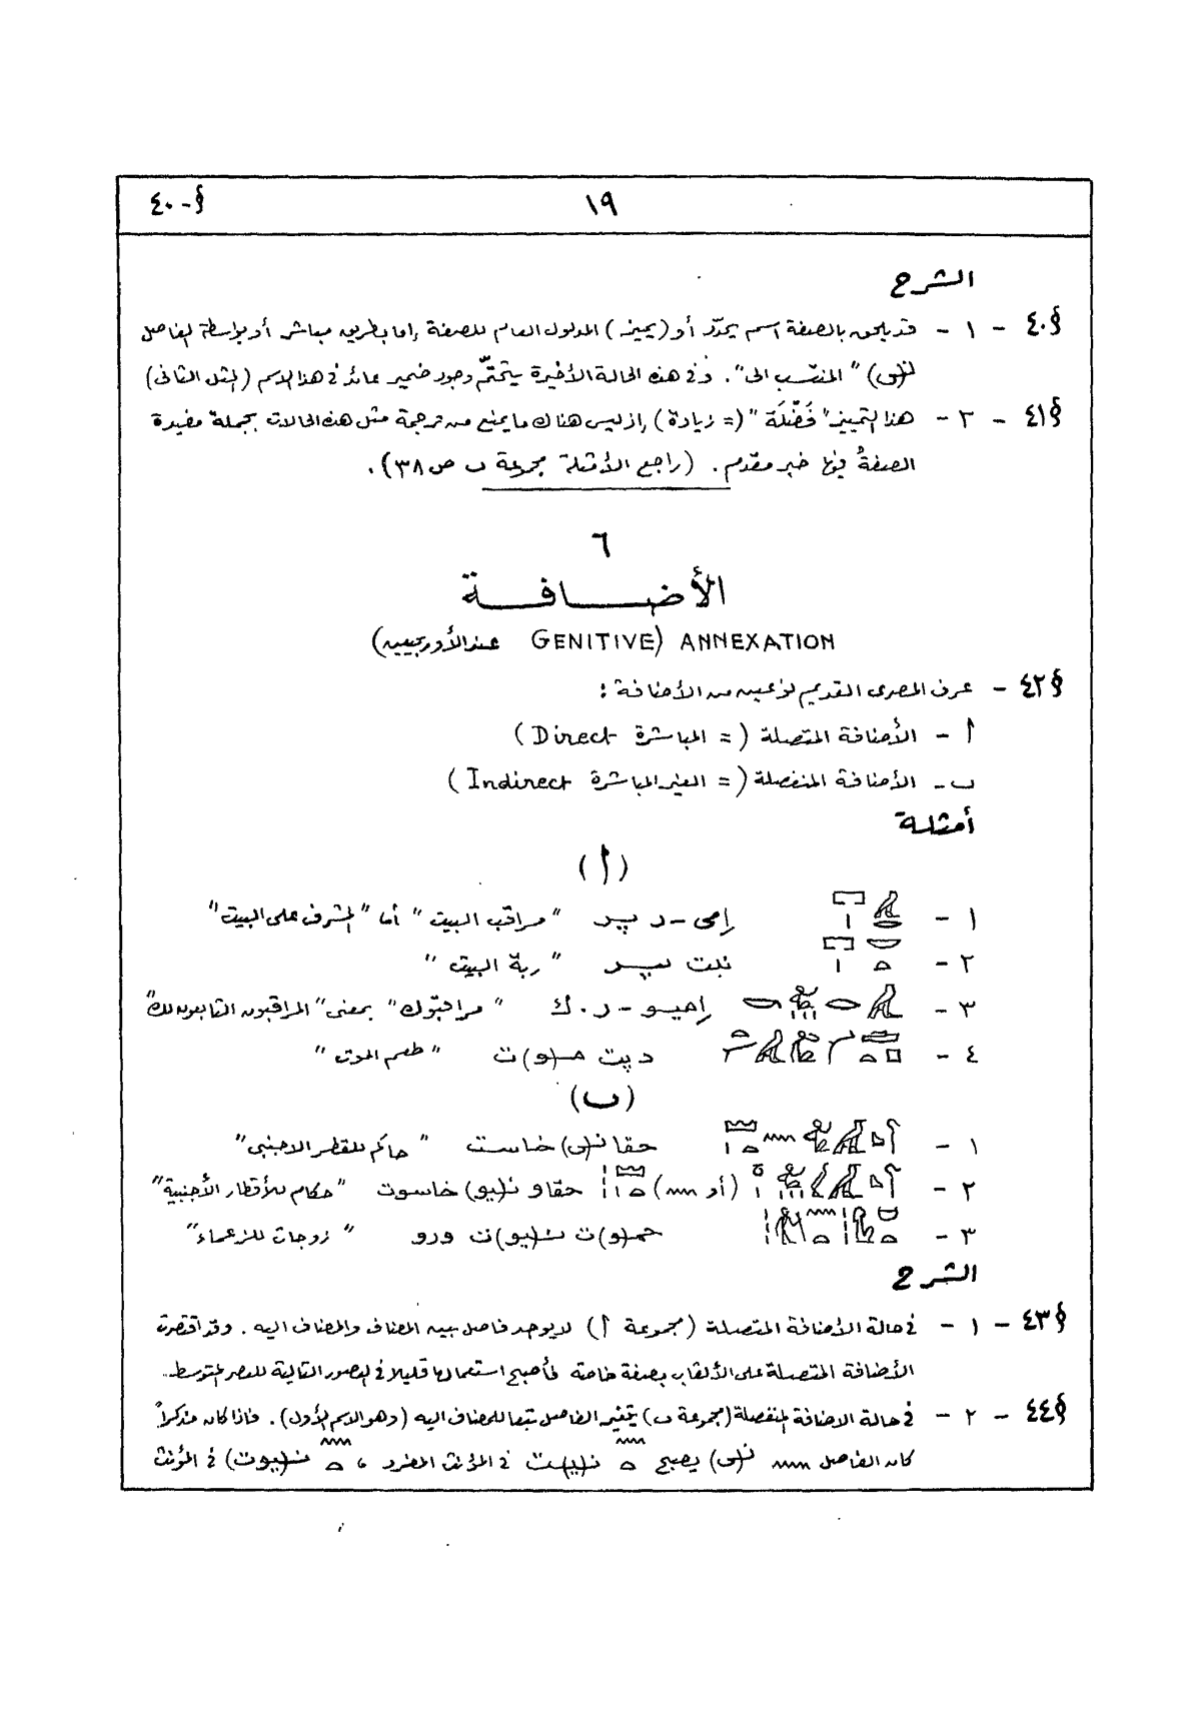 §-٤٠ ١٩
الشرح
§٤٠ - ١ - قد يلحق بالصفة اسم يحدّد أو (يميز) المدلول العام للصفة إما بطريق مباشر أو بواسطة الفاصل
ن(ى) "المنتسب الى". وفى هذه الحالة الأخيرة يتحتّم وجود ضمير عائد فى هذا الاسم (المثل الثانى)
§٤١ - ٢ - هذا التمييز "فَضْلَة" (= زيادة) إذ ليس هناك ما يمنع من ترجمة مثل هذه الحالات بجملة مفيدة
الصفةُ فيها خبر مقدم. (راجع الأمثلة مجموعة ب ص ٣٨).
٦
الأضافة
GENITIVE) ANNEXATION عند الأوربيين)
§٤٢ - عرف المصرى القديم نوعين من الأضافة :
أ - الأضافة المتصلة (= المباشرة Direct)
ب - الأضافة المنفصلة (= الغير المباشرة Indirect)
أمثلة
(أ)
١ - إمى-ر پر "مراقب البيت" أما "المشرف على البيت"
٢ - نبت پر "ربة البيت"
٣ - إميو-ر.ك "مراقبوك" بمعنى "المراقبون التابعون لك"
٤ - دپت م(و)ت "طعم الموت"
(ب)
١ - حقا ن(ى) خاست "حاكم للقطر الاجنبى"
٢ - (أو ) حقاو ن(يو) خاسوت "حكام للأقطار الأجنبية"
٣ - حم(و)ت ن(يو)ت ورو "زوجات للزعماء"
الشرح
§٤٣ - ١ - فى حالة الأضافة المتصلة (مجموعة أ) لا يوجد فاصل بين المضاف والمضاف اليه. وقد اقتصرت
الأضافة المتصلة على الألقاب بصفة خاصة فأصبح استعمالها قليلا فى العصور التالية للعصر المتوسط.
§٤٤ - ٢ - فى حالة الاضافة المنفصلة (مجموعة ب) يتغير الفاصل تبعا للمضاف اليه (وهو الاسم الأول). فاذا كان مذكراً
كان الفاصل ن(ى) يصبح ن(ي)ت فى المؤنث المفرد ، ن(يوت) فى المؤنث